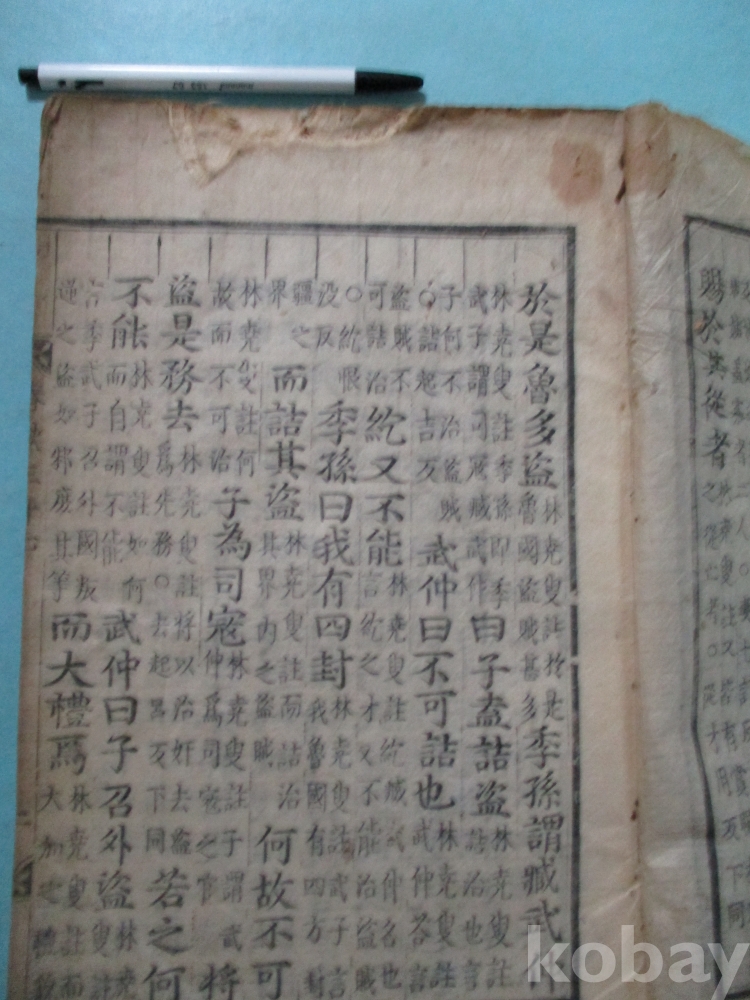 賜於其從者
於是魯多盜
林堯叟註於是
魯國盜賊甚多
季孫謂臧武
林堯叟註季孫即季
武子謂司寇臧武仲
曰子盍詰盜
林堯叟註
詰治也言
子何不治盜賊
○詰起吉反
武仲曰不可詰也
林堯叟註
武仲答言
盜賊不
可詰治
紇又不能
林堯叟註紇臧武仲名也
言紇之才又不能治盜賊
○紇恨
没反
季孫曰我有四封
林堯叟註武子言
我魯國有四方封
疆之
界
而詰其盜
林堯叟註而詰治
其界内之盜賊
何故不可
林堯叟註何
故而不可治
子為司寇
林堯叟註子謂武
仲爲司寇之官
將
盜是務去
林堯叟註將以治奸去盜
爲先務○去起呂反下同
若之何
不能
林堯叟註如何
而自謂不能
武仲曰子召外盜
林堯
叟註
言季武子召外國叛
逆之盜如邾庶其等
而大禮焉
林堯叟註而
大加之禮敬
kobay